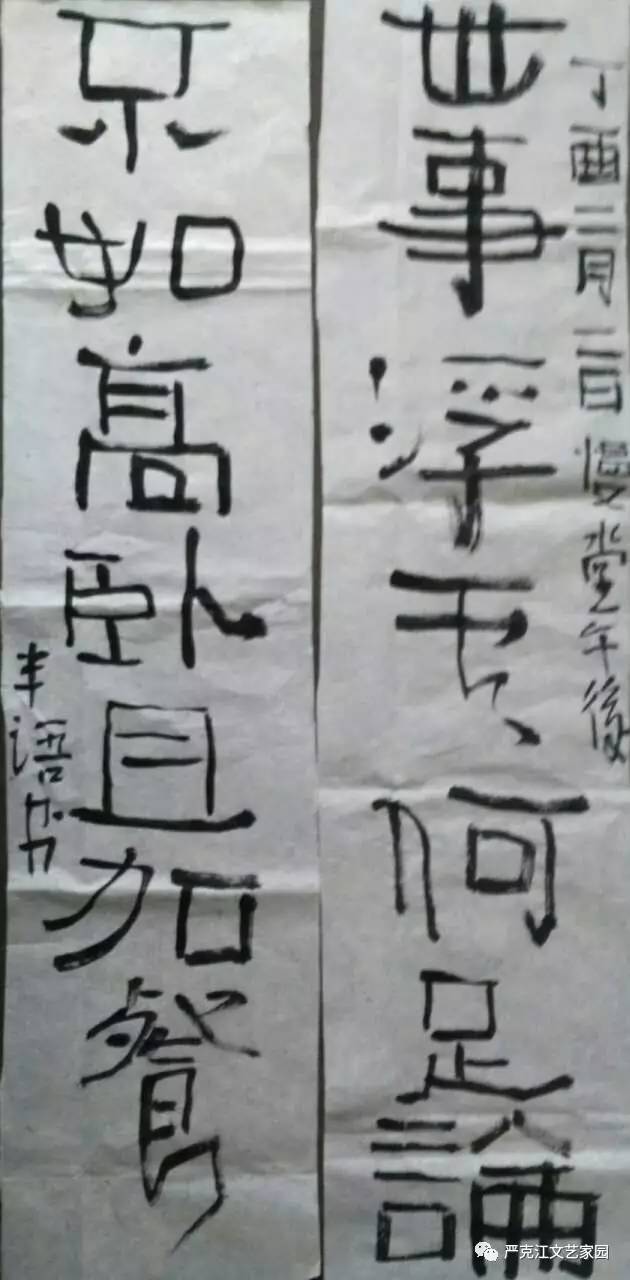 世事浮云何足論
丁酉二月二日慢堂午後
不如高卧且加餐
丰语书
严克江文艺家园